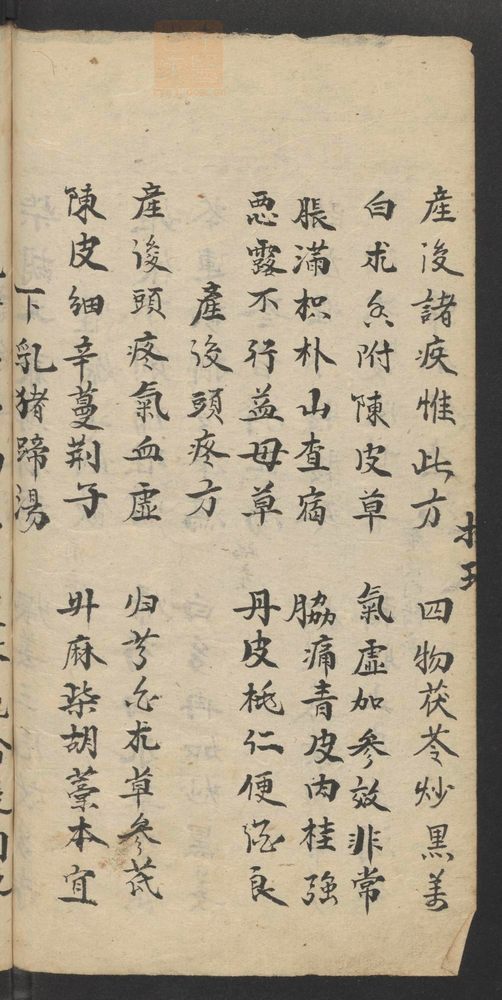 産後諸疾惟此方 四物茯苓炒黒姜
白朮香附陳皮草 氣虛加參效非常
脹滿枳朴山查宿 脇痛青皮肉桂強
惡露不行益母草 丹皮桃仁便從良
産後頭疼方
産後頭疼氣血虛 归芎白朮草參芪
陳皮細辛蔓荊子 升麻柴胡藁本宜
下乳猪蹄湯